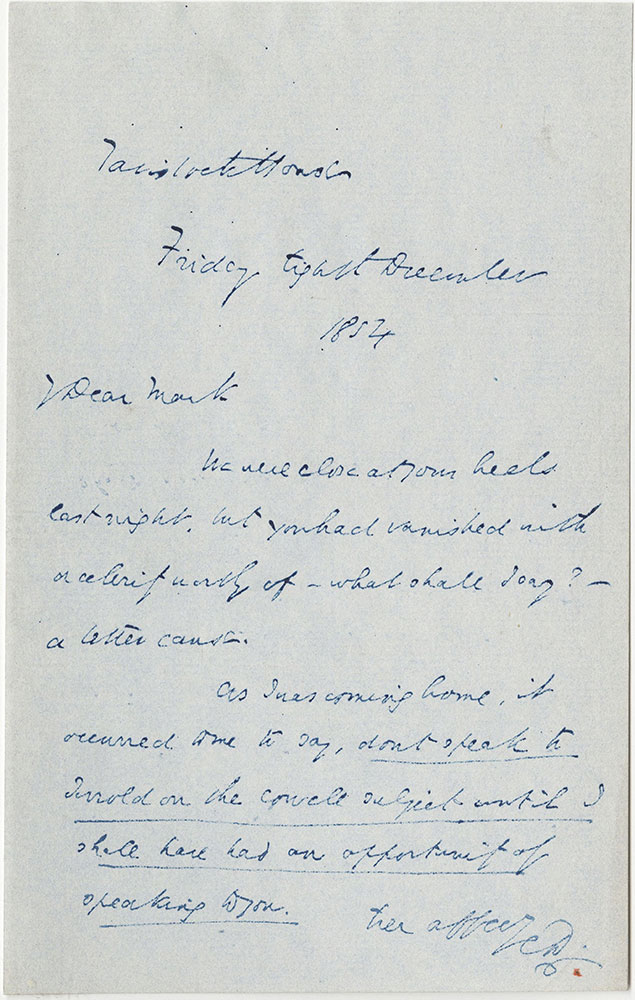 Tavistock House
Friday Eighth December
1854
My Dear Mark
We were close at your heels
last night, but you had vanished with
a celerity worthy of – what shall I say? –
a better cause.
As I was coming home, it
occurred to me to say, dont speak to
Jerrold on the Cowell subject until I
shall have had an opportunity of
speaking to you.
Ever affecy
CD.